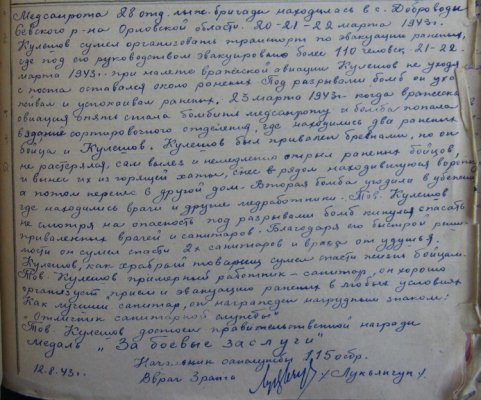 Медсанрота 28 отд. лыж. бригады находилась в с. Доброводы
Севского р-на Орловской области. 20-21-22 марта 1943г.
Кулешов сумел организовать транспорт по эвакуации раненых,
где под его руководством эвакуировано более 110 человек. 21-22
марта 1943г. при налете вражеской авиации Кулешов не уходя
с поста оставался около раненых. Под разрывами бомб он уха
живал и успокаивал раненых. 23 марта 1943г. когда вражеская
авиация опять стала бомбить медсанроту и бомба попала
в здание сортировочного отделения, где находились два раненых
бойца и Кулешов. Кулешов был привален бревнами, но он
не растерялся, сам вылез и немедленно отрыл раненых бойцов,
и вынес их из горящей хаты, снес в рядом находившуюся воронку
а потом перенес в другой дом. Вторая бомба угодила в убежище
где находились врачи и другие медработники. Тов. Кулешов
не смотря на опасность под разрывами бомб кинулся спасать
приваленных врачей и санитаров. Благодаря его быстрой
мости он сумел спасти 2х санитаров и врача от удушья.
Кулешов, как храбрый товарищ сумел спасти жизнь бойцам.
Тов. Кулешов примерный работник - санитар, он хорошо
организует прием и эвакуацию раненых в любых условиях
Как лучший санитар, он награжден нагрудным знаком:
"Отличник санитарной службы"
Тов. Кулешов достоин правительственной награды
медаль "За боевые заслуги"
Начальник санслужбы 115 осбр.
12.8.43г. Вврач 3 ранга /Лукьянчук/